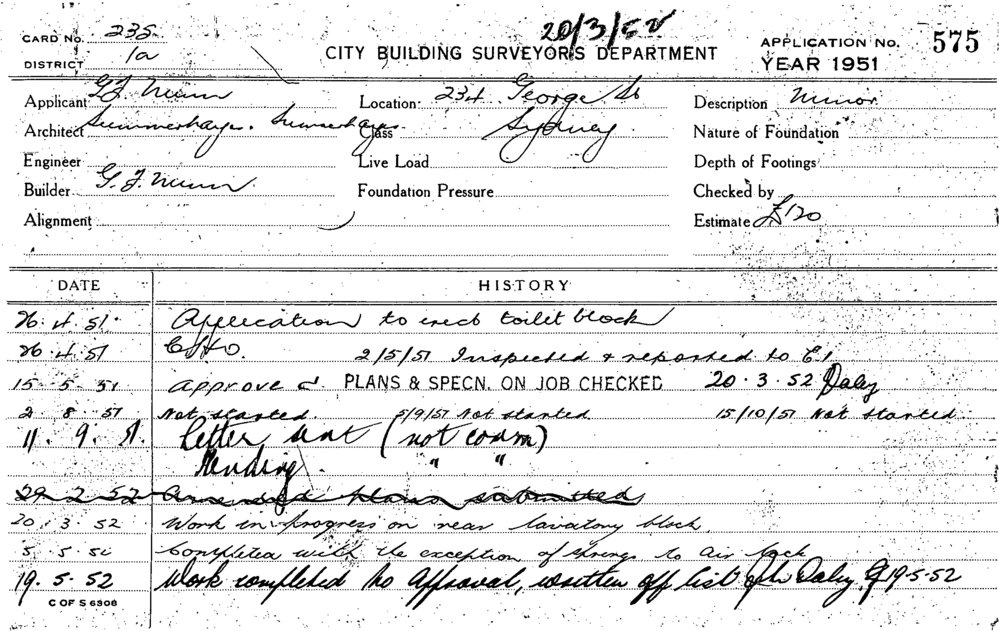 20/3/52
CARD NO. 235
CITY BUILDING SURVEYOR'S DEPARTMENT
APPLICATION NO. 575
DISTRICT 1a
YEAR 1951
Applicant G. F. Nunn
Location: 234 George St
Description Minor
Architect Summerhayes. Summerhayes
Class Sydney
Nature of Foundation
Engineer
Live Load
Depth of Footings
Builder G. F. Nunn.
Foundation Pressure
Checked by
Alignment
Estimate £120
DATE HISTORY
26. 4. 51. Application to erect toilet block
26. 4. 51 2/5/51 Inspected & reported to
15. 5. 51 approved PLANS & SPECN. ON JOB CHECKED 20. 3. 52 Daley
2. 8. 51 Not started. 5/9/51 Not started 15/10/51 Not started
11. 9. 51. Letter sent (not comm)
Pending. " "
29 2 52 Amended plans submitted
20. 3. 52 Work in progress on rear lavatory block
5. 5. 52 Completed with the exception of to air lock
19. 5. 52 Work completed to Approval, written off list Daley 19-5-52
C OF S 6308